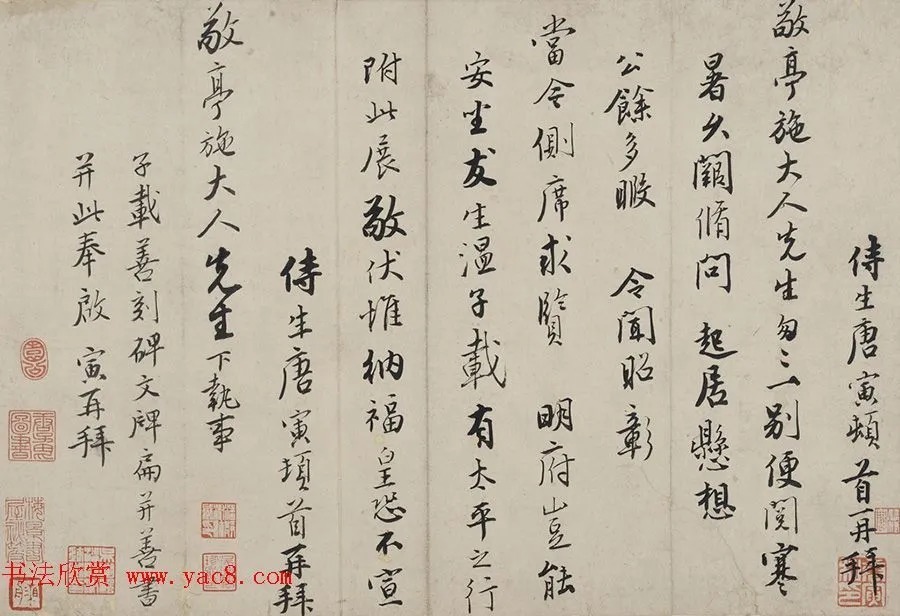 侍生唐寅頓首再拜
敬亭施大人先生匆〻一别便閲寒
暑久闊脩問 起居懸想
公餘多暇 令聞昭彰
當今側席求賢 明府豈能
安坐友生温子載有太平之行
附此展敬伏惟納福皇恐不宣
侍生唐寅頓首再拜
敬亭施大人先生下執事
子載善刻碑文牌扁并善書
并此奉啟 寅再拜
书法欣赏 www.yac8.com